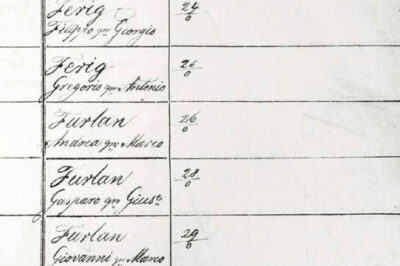 Ferig
Filippo qm Giorgio
24
0
Ferig
Gregorio qm Antonio
25
0
Furlan
Andrea qm Marco
26
0
Furlan
Gasparo qm Gius.e
28
0
Furlan
Giovanni qm Marco
29
0